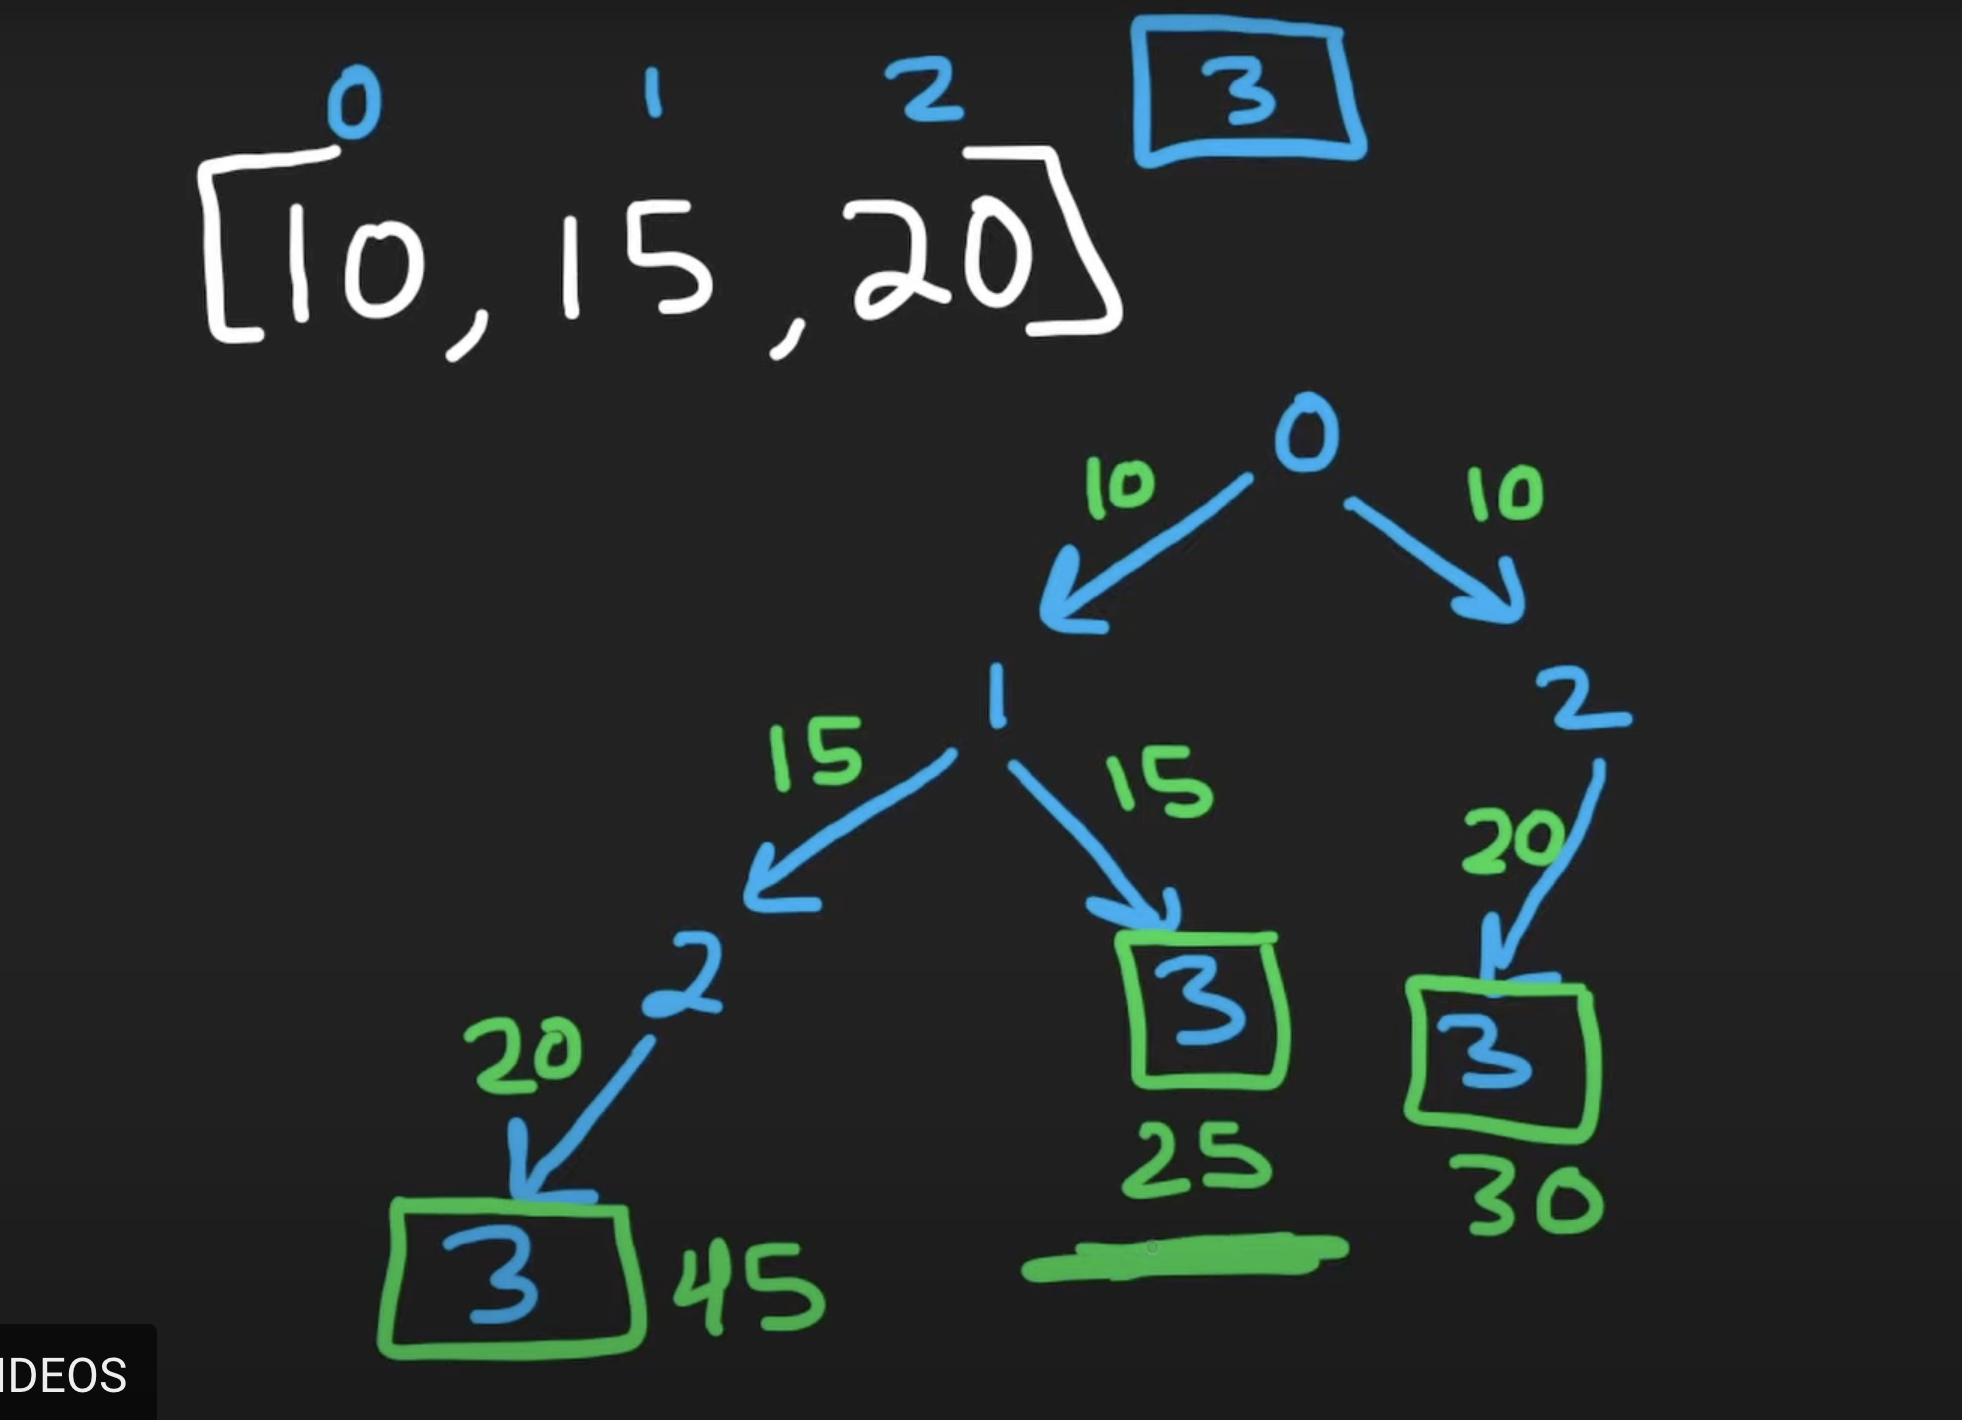 0 1 2 3
[10, 15, 20]
0
10 10
1 2
15 15
20
2 3 3
20
25 30
3 45
IDEOS